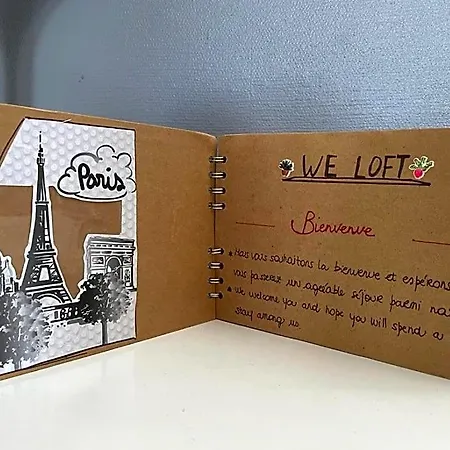 Paris
WE LOFT
Bienvenue
• Nous vous souhaitons la bienvenue et espérons
vous passerez un agréable séjour parmi nous
• We welcome you and hope you will spend a
stay among us